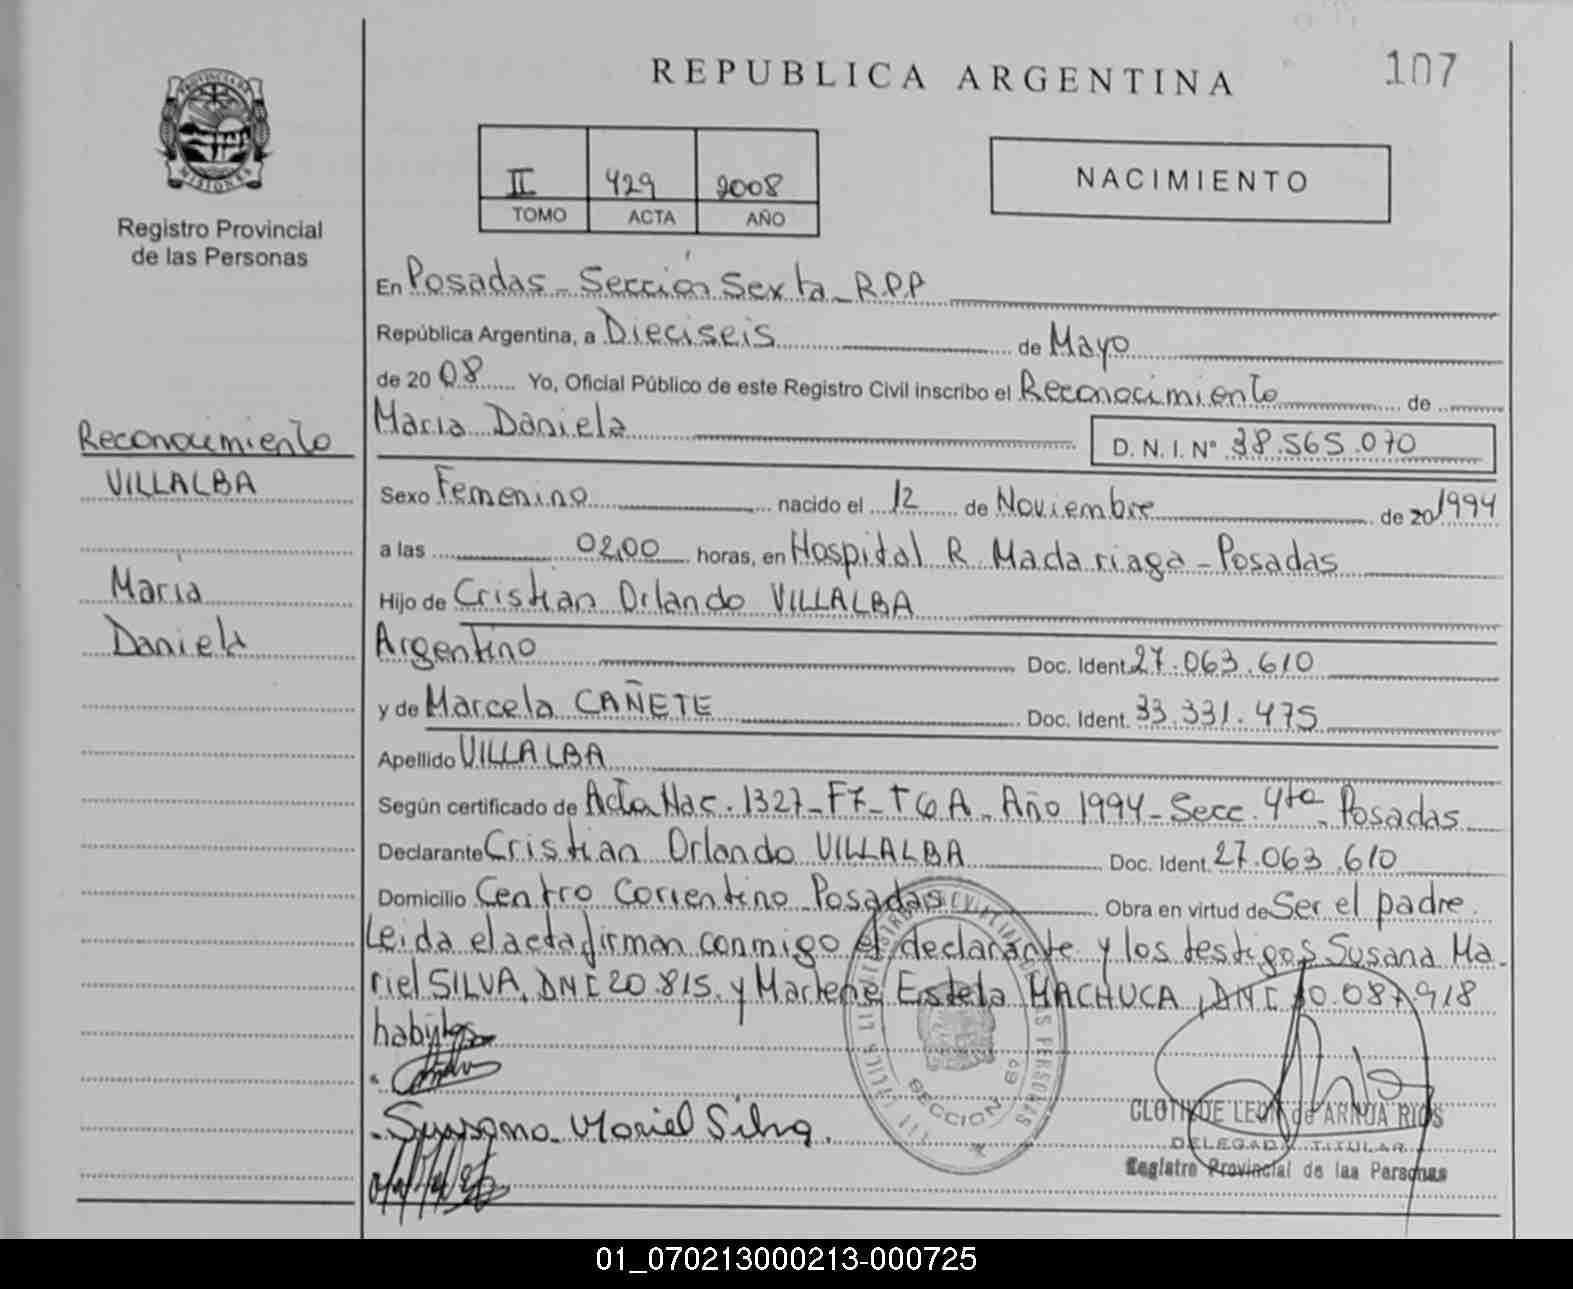 107
REPUBLICA ARGENTINA
PROVINCIA DE MISIONES
Registro Provincial
de las Personas
II 429 2008
TOMO ACTA AÑO
NACIMIENTO
En Posadas - Sección Sexta - R.P.P
República Argentina, a Dieciseis de Mayo
de 2008 Yo, Oficial Público de este Registro Civil inscribo el Reconocimiento de
Maria Daniela D. N. I. Nº 38.565.070
Reconocimiento
VILLALBA
Maria
Daniela
Sexo Femenino nacido el 12 de Noviembre de 20 1994
a las 02,00 horas, en Hospital R. Madariaga - Posadas
Hijo de Cristian Orlando VILLALBA
Argentino Doc. Ident. 27.063.610
y de Marcela CAÑETE Doc. Ident. 33.331.475
Apellido VILLALBA
Según certificado de Acta Nac. 1327 - F7 - T 6 A - Año 1994 - Secc. 4ta - Posadas
Declarante Cristian Orlando VILLALBA Doc. Ident. 27.063.610
Domicilio Centro Correntino Posadas Obra en virtud de Ser el padre.
Leida el acta firman conmigo el declarante y los testigos Susana Ma-
riel SILVA, DNI 20.815. y Marlene Estela MACHUCA, DNI
habiles
Sussana Mariel Silva.
SECCION 6ª
CLOTILDE LEON de ARRUA RIOS
DELEGADA TITULAR
Registro Provincial de las Personas
01_070213000213-000725